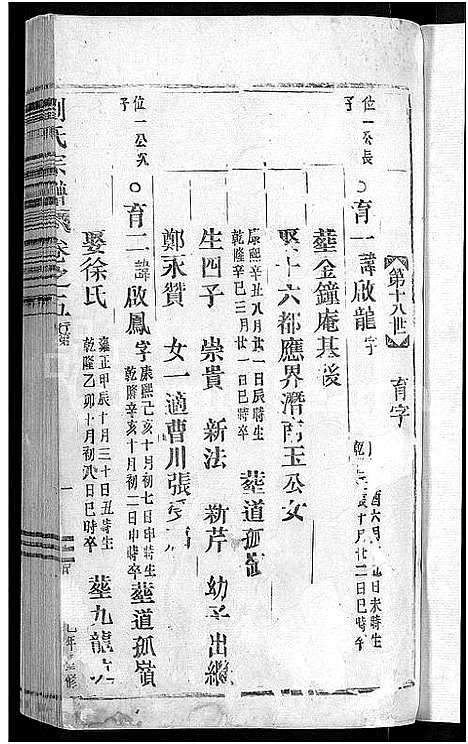 第十八世
育字
位一公長子
育一諱啟龍字
酉六月
日未時生
十月廿二日巳時卒
葬金鐘庵基後
娶十六都應界潛
玉公女
康熙辛丑八月廿一日辰時生
乾隆辛巳三月廿一日巳時卒
葬道孤嶺
生四子 崇貴 新法 新芹 幼子出繼
鄭永贊 女一適曹川張
位一公次子
育二諱啟鳳字
康熙己亥十月初七日申時生
乾隆辛亥十月初二日申時卒
葬道孤嶺
娶徐氏
雍正甲辰十月三十日丑時生
乾隆乙卯十月初八日巳時卒
葬九龍
劉氏宗譜
卷之五
行第
一